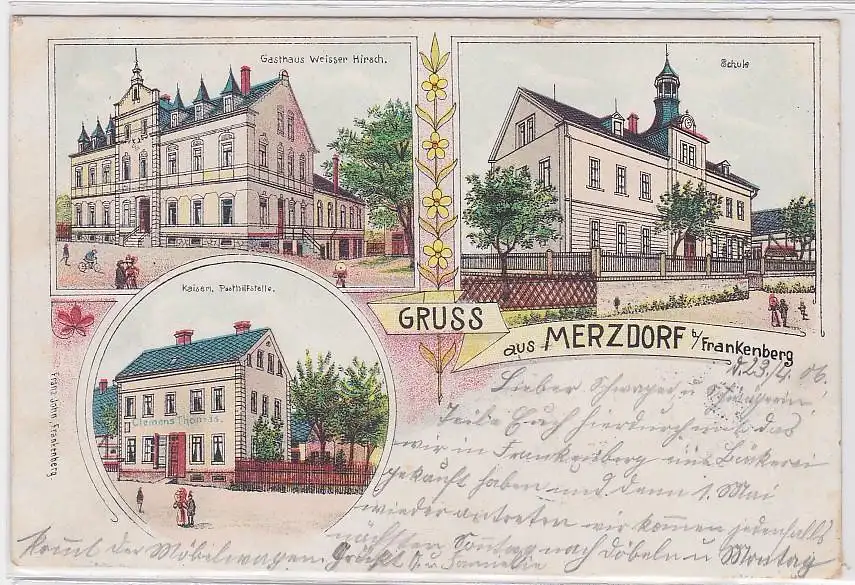 Gasthaus Weisser Hirsch.
Schule
Kaiserl. Posthilfstelle.
Clemens Thomas.
GRUSS
aus MERZDORF b/Frankenberg
Franz John, Frankenberg
d. 23./4. 06.
Lieber Schwager u Schwägerin!
Teile Euch hierdurch mit das
wir in Frankenberg eine Bäckerei
gekauft haben und denn 1. Mai
wieder antreten wir kommen jedenfalls
nächsten Sonntag nach Döbeln u Montag
kommt der Möbelwagen
u. Familie